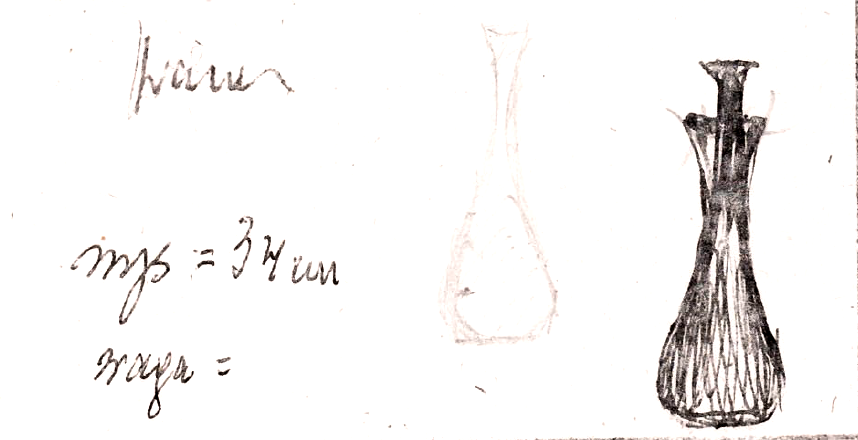 wys = 34 cm
waga =